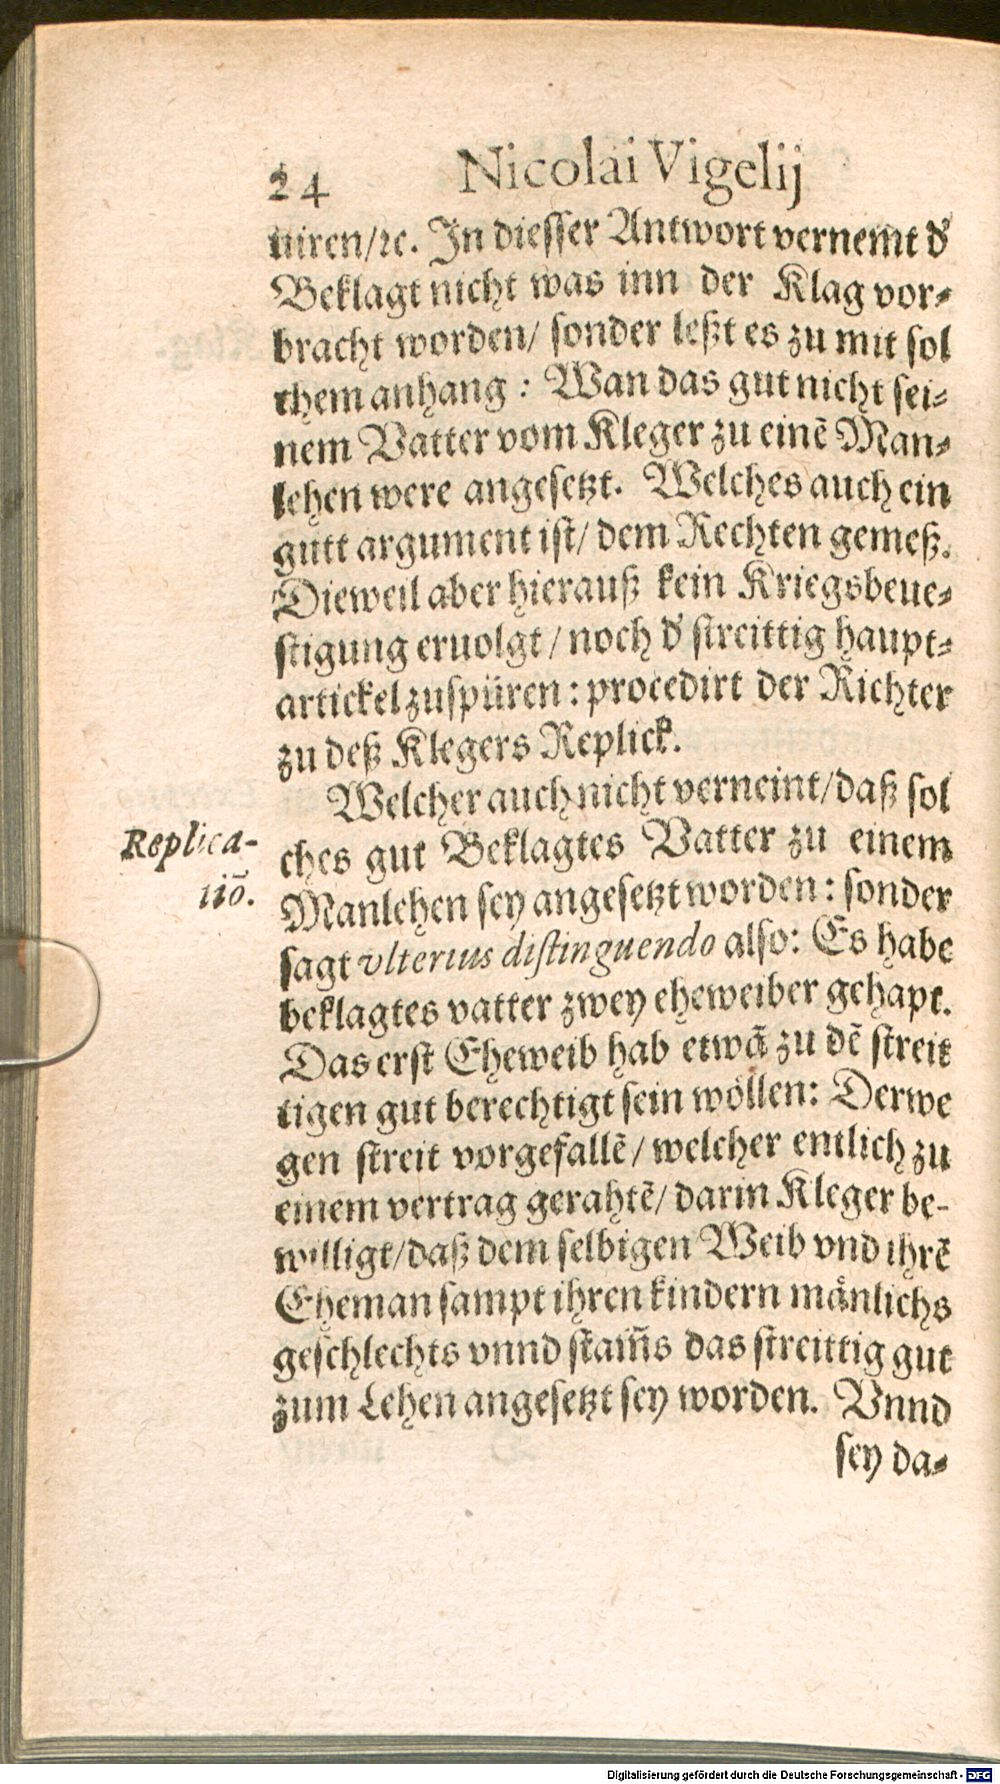 24 Nicolai Vigelij
uiren/ꝛc. In diesser Antwort vernemt d'
Beklagt nicht was inn der Klag vor-
bracht worden/ sonder leßt es zu mit sol
chem anhang: Wan das gut nicht sei-
nem Vatter vom Kleger zu einē Man-
lehen were angesetzt. Welches auch ein
gutt argument ist/ dem Rechten gemeß.
Dieweil aber hierauß kein Kriegsbeue-
stigung eruolgt/ noch d' streittig haupt-
artickel zuspüren: procedirt der Richter
zu deß Klegers Replick.
Welcher auch nicht verneint/ daß sol
Replica-
tiō.
ches gut Beklagtes Vatter zu einem
Manlehen sey angesetzt worden: sonder
sagt vlterius distinguendo also: Es habe
beklagtes vatter zwey eheweiber gehapt.
Das erst Eheweib hab etwā zu dē streit
tigen gut berechtigt sein wöllen: Derwe
gen streit vorgefallē/ welcher entlich zu
einem vertrag gerahtē/ darin Kleger be-
willigt/ daß dem selbigen Weib vnd ihrē
Eheman sampt ihren kindern mänlichs
geschlechts vnnd stam̄s das streittig gut
zum Lehen angesetzt sey worden. Vnnd
sey da-
Digitalisierung gefördert durch die Deutsche Forschungsgemeinschaft - DFG